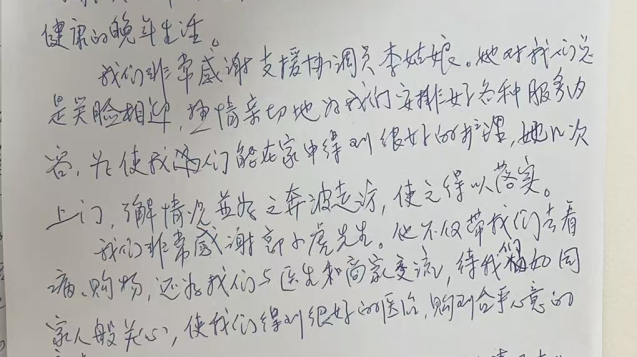 健康的晚年生活。
我们非常感谢支援协调员李姑娘。她对我们总
是笑脸相迎,热情亲切地为我们安排好各种服务内
容,为使我们能在家中得到很好的护理,她几次
上门,了解情况并为之奔波走访,使之得以落实。
我们非常感谢郭小虎先生。他不仅带我们去看
病、购物,还为我们与医生和商家交流,待我们如同
家人般关心,使我们得到很好的医治,购到合乎心意的